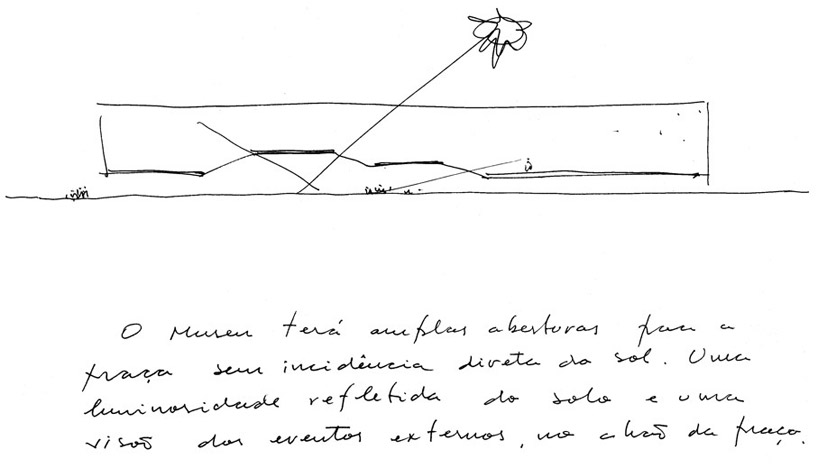 O Museu terá amplas aberturas para a
praça sem incidência direta do sol. Uma
luminosidade refletida do solo e uma
visão dos eventos externos, no chão da praça.